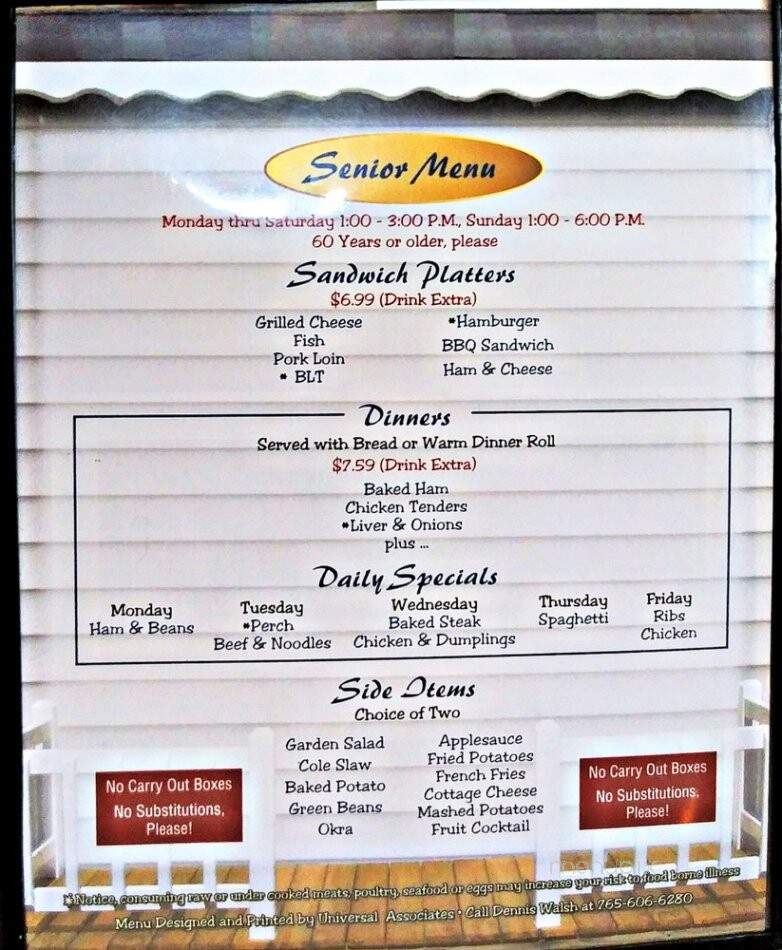 Senior Menu
Monday thru Saturday 1:00 - 3:00 P.M., Sunday 1:00 - 6:00 P.M.
60 Years or older, please
Sandwich Platters
$6.99 (Drink Extra)
Grilled Cheese
Fish
Pork Loin
* BLT
*Hamburger
BBQ Sandwich
Ham & Cheese
Dinners
Served with Bread or Warm Dinner Roll
$7.59 (Drink Extra)
Baked Ham
Chicken Tenders
*Liver & Onions
plus ...
Daily Specials
Monday
Ham & Beans
Tuesday
*Perch
Beef & Noodles
Wednesday
Baked Steak
Chicken & Dumplings
Thursday
Spaghetti
Friday
Ribs
Chicken
Side Items
Choice of Two
Garden Salad
Cole Slaw
Baked Potato
Green Beans
Okra
Applesauce
Fried Potatoes
French Fries
Cottage Cheese
Mashed Potatoes
Fruit Cocktail
No Carry Out Boxes
No Substitutions,
Please!
No Carry Out Boxes
No Substitutions,
Please!
*Notice, consuming raw or under cooked meats, poultry, seafood or eggs may increase your risk to food borne illness
Menu Designed and Printed by Universal Associates • Call Dennis Walsh at 765-606-6280